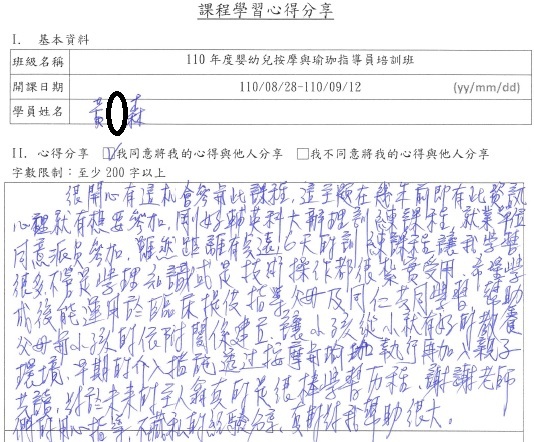 課程學習心得分享
I. 基本資料
班級名稱 110 年度嬰幼兒按摩與瑜珈指導員培訓班
開課日期 110/08/28-110/09/12 (yy/mm/dd)
學員姓名 黃 森
II. 心得分享 ☑我同意將我的心得與他人分享 □我不同意將我的心得與他人分享
字數限制：至少 200 字以上
很開心有這機會參與此課程，這主題在幾年前即有此資訊
心裡就有想要參加，剛好輔英科大辦理訓練課程，就業單位
同意派員參加，雖然距離有點遠，6天的訓練課程讓我學習
很多，不管是學理知識或是技術操作都很紮實受用，希望學
成後能運用於臨床提供指導父母及同仁共同學習，幫助
父母與小孩的依附關係建立，讓小孩從小就有好的教養
環境，早期的介入措施透過按摩與瑜珈執行再加入親子
共讀，對於未來的主人翁真的是很棒學習历程，謝謝老師
們的用心指導，不藏私的經驗分享，真的對我幫助很大。